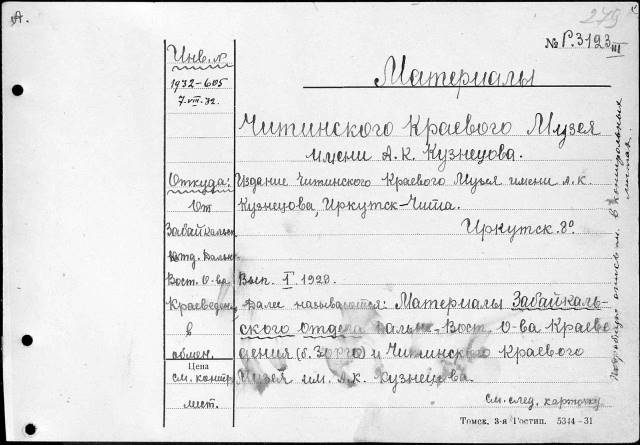 А.
279
№ Р.3123
III
Инв. №
1932-605
7-VIII-32.
Материалы
Читинского Краевого Музея
имени А.К. Кузнецова.
Откуда:
От
Забайкальск.
Отд. Дальне-
Вост. О-ва
Краеведен.
в
обмен.
Издание Читинского Краевого Музея имени А.К.
Кузнецова, Иркутск-Чита.
Иркутск. 8º.
Вып. I 1928.
Далее называются: Материалы Забайкаль-
ского Отдела Дальне-Вост. О-ва Краеве-
дения (б. ЗОРГО) и Читинского Краевого
Музея им. А.К. Кузнецова.
Цена
см. контр.
лист.
см. след. карточку
Томск. 3-я Гостип. 5344-31
Подробную опись см. в контрольных
листах.